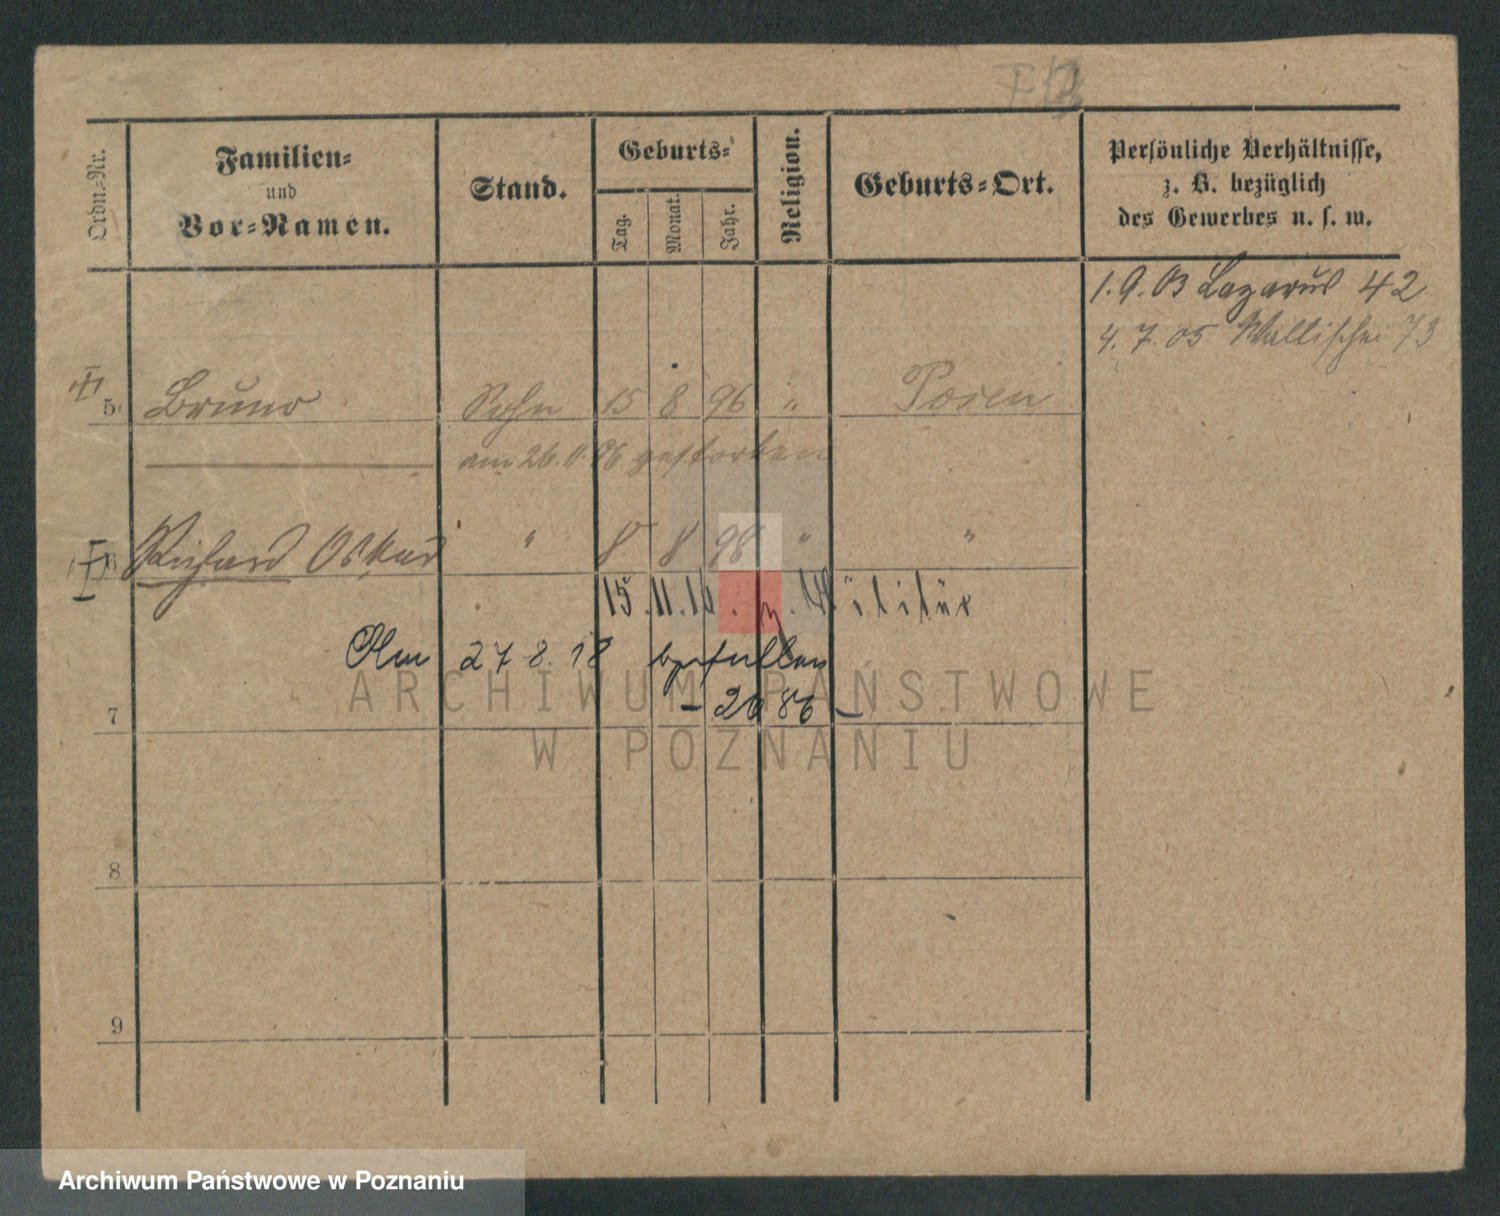 Ordn-Nr.
Familien-
und
Vor-Namen.
Stand.
Geburts-
Tag.
Monat.
Jahr.
Religion.
Geburts-Ort.
Persönliche Verhältnisse,
z. B. bezüglich
des Gewerbes u. s. w.
1.9.03 Lazarus 42
4.7.05 Wallischei 73
5 Bruno Sohn 15 8 96 " Posen
am 26.11.06 gestorben
6 Richard Oskar " 8 8 98 " "
15.11.16. z. Militär
Am 27 8. 18 gefallen
- 2686 -
7
8
9
ARCHIWUM PAŃSTWOWE
W POZNANIU
Archiwum Państwowe w Poznaniu